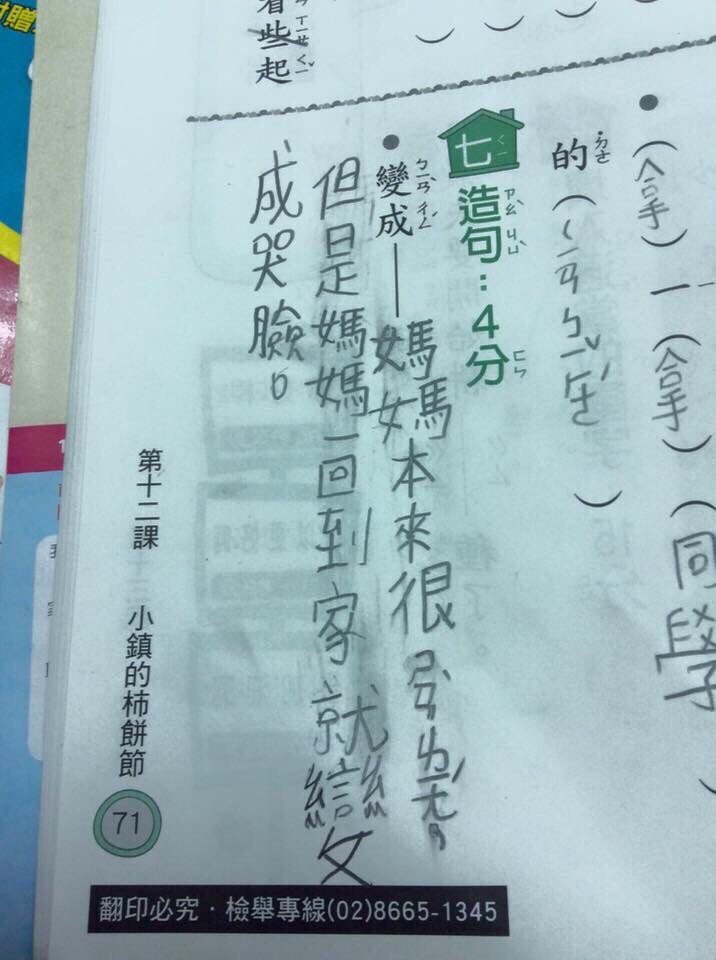 (拿)一(拿)(同學
的(ㄑㄧㄢ ㄅㄧˇ ㄏㄜˊ)
七 造句：4分
變成——媽媽本來很
但是媽媽一回到家就變
成哭臉。
些起
第十二課 小鎮的柿餅節
71
翻印必究．檢舉專線(02)8665-1345